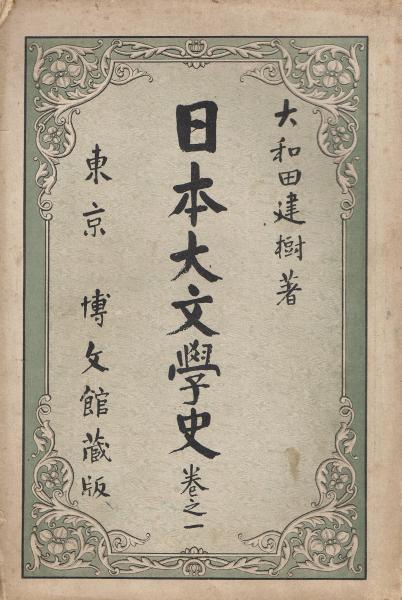 大和田建樹著
日本大文學史 卷之一
東京 博文館藏版